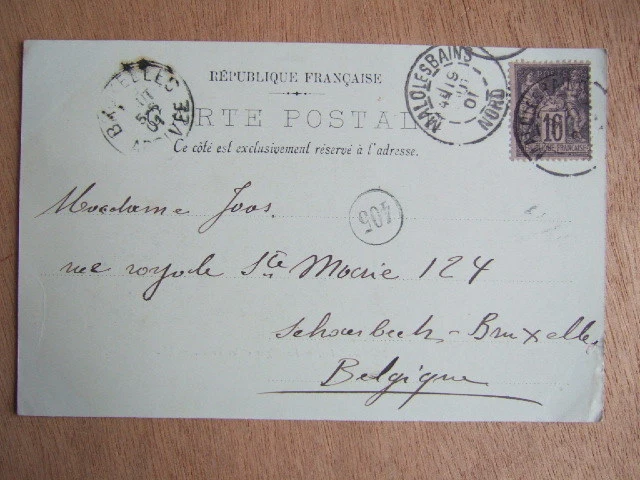 RÉPUBLIQUE FRANÇAISE
CARTE POSTALE
Ce côté est exclusivement réservé à l'adresse.
BRUXELLES
ARRIVÉE
MALO LES BAINS
NORD
10
405
Madame Joos.
rue royale Ste Marie 124
Schaerbeek-Bruxelles
Belgique